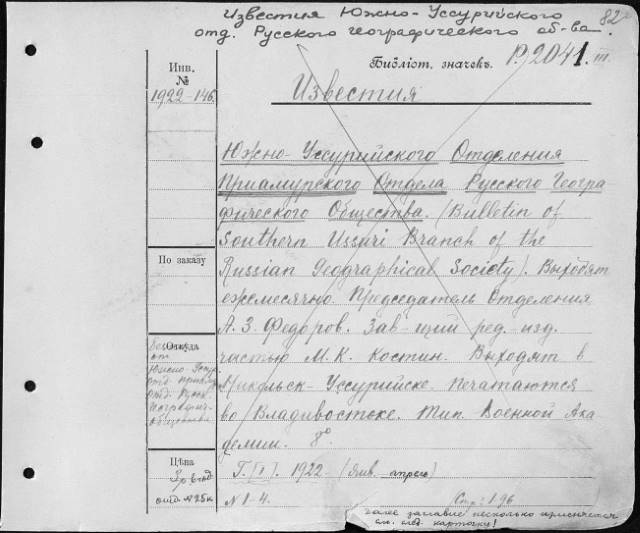 Известия Южно-Уссурийского 82
отд. Русского географического об-ва.
Инв. Бібліот. значекъ. Р/2041. III
№
1922-146. Известия
Южно-Уссурийского Отделения
Приамурского Отдела Русского Геогра
фического Общества. (Bulletin of
Southern Ussuri Branch of the
По заказу Russian Geographical Society). Выходят
ежемесячно. Председатель Отделения
А. З. Федоров. Зав-щий ред. изд.
Откуда частью М. К. Костин. Выходят в
от Никольск-Уссурийске. Печатаются
Южно-Уссур. во Владивостоке. Тип. Военной Ака
демии. 8°
Цѣна Г. [I]. 1922 (Янв. апрель)
отд. № 25к N 1-4. Стр: 1-96
далее заглавие несколько изменяется
см. след. карточку!